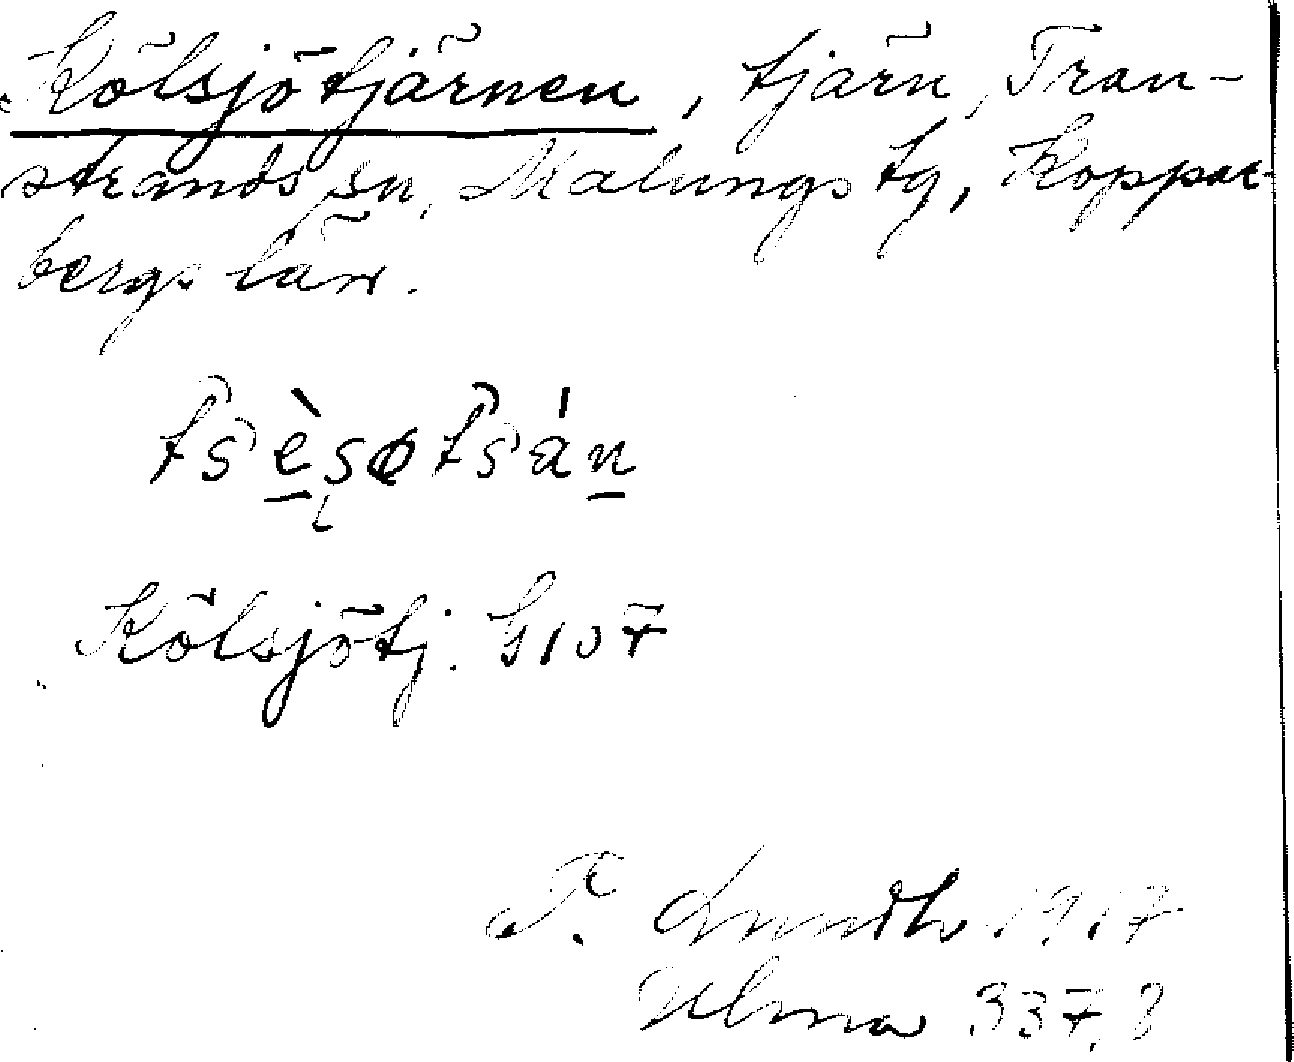 Kölsjötjärnen, tjärn, Tran-
strands sn, Malungs tg, Koppar-
bergs län.
Kölsjötj. G107
Lundh 1917
Ulma 337,8